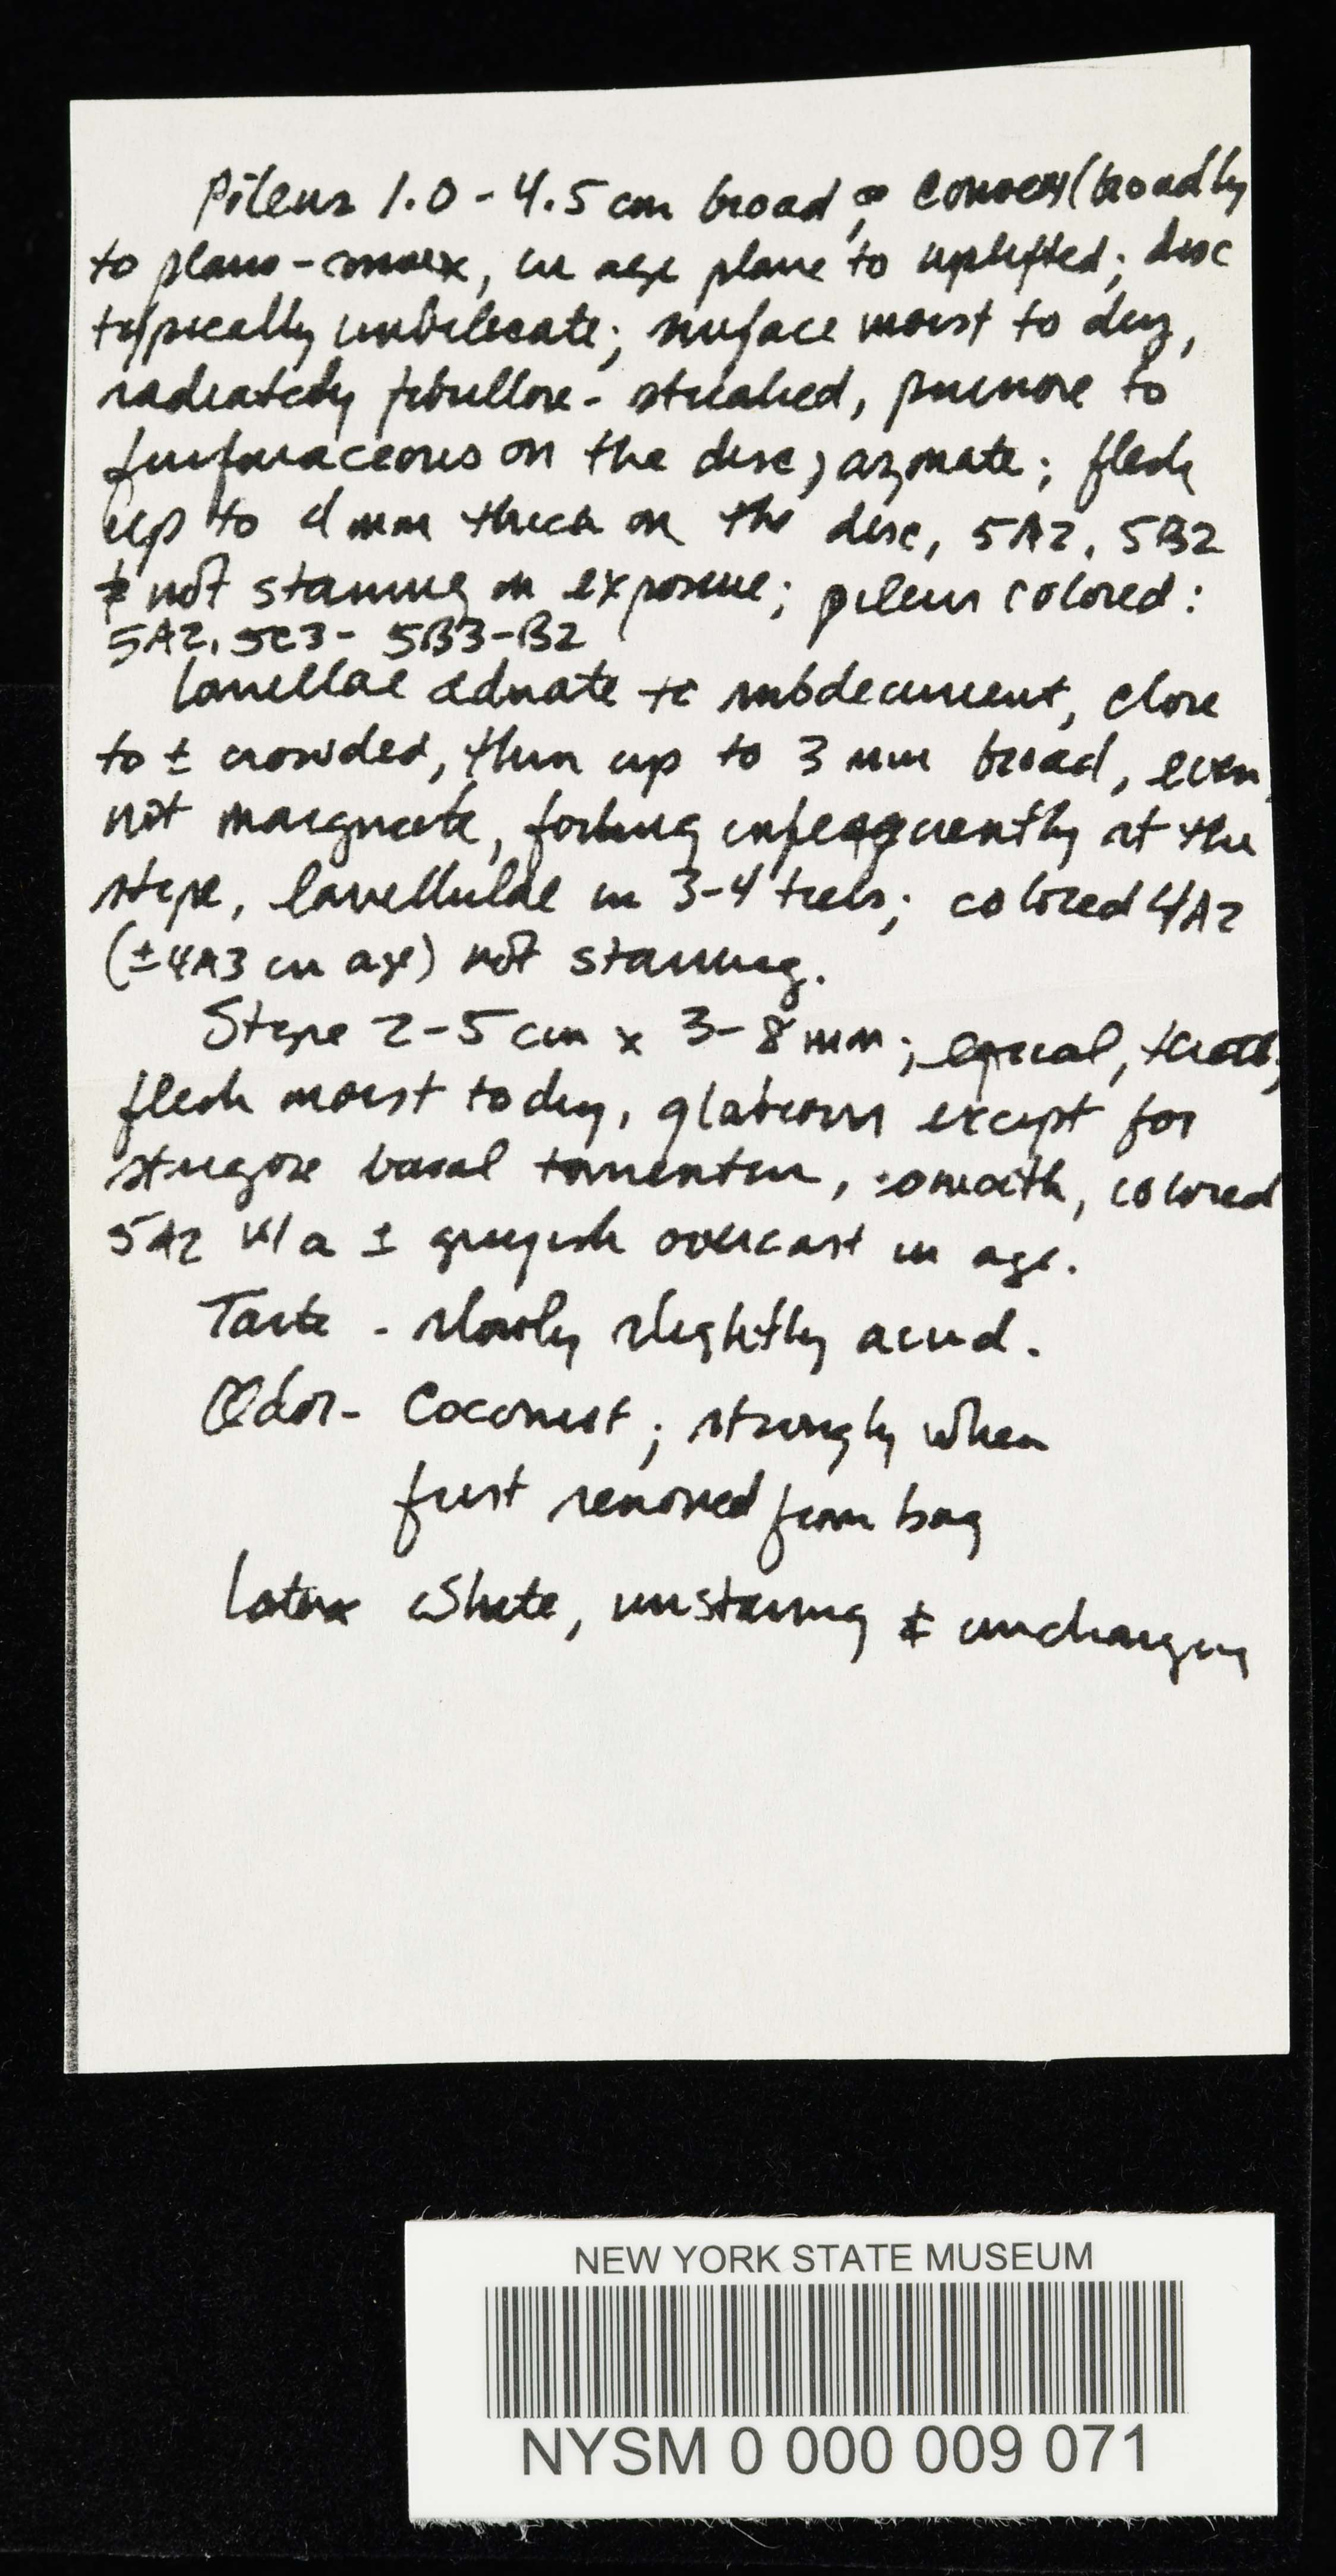 Pileus 1.0 - 4.5 cm broad, convex (broadly
to plano-convex, in age plane to uplifted; disc
typically umbilicate; surface moist to dry,
radiately fibrillose - streaked, pruinose to
furfuraceous on the disc, azonate; flesh
up to 4 mm thick on the disc, 5A2, 5B2
not staining on exposure; pileus colored:
5A2, 5C3 - 5B3-B2
Lamellae adnate to subdecurrent, close
to ± crowded, thin up to 3 mm broad, even,
not marginate, forking infrequently at the
stipe, lamellulae in 3-4 tiers; colored 4A2
(±4A3 in age) not staining.
Stipe 2-5 cm x 3-8 mm; equal,
flesh moist to dry, glabrous except for
strigose basal tomentum, smooth, colored
5A2 w/ a ± greyish overcast in age.
Taste - slowly slightly acrid.
Odor - Coconut; strongly when
first removed from bag
Latex white, unstaining & unchanging
NEW YORK STATE MUSEUM
NYSM 0 000 009 071